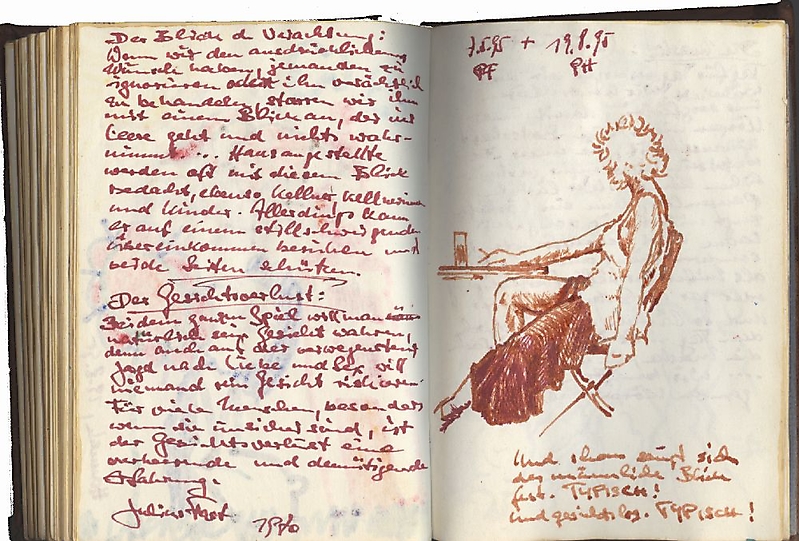 Der Blick d Verachtung:
Wenn wir den ausdrücklichen
Wunsch haben, jemanden zu
ignorieren oder ihn verächtlich
zu behandeln, starren wir ihn
mit einem Blick an, der ins
leere geht und nichts wahr-
nimmt ... Hausangestellte
werden oft mit diesem Blick
bedacht, ebenso Kellner, Kellnerinnen
und Kinder. Allerdings kann
er auf einem stillschweigenden
Übereinkommen beruhen und
beide Seiten schützen.
Der Gesichtsverlust:
Bei dem ganzen Spiel will man
natürlich sein Gesicht wahren,
denn auch auf der verwegensten
Jagd nach Liebe und Sex will
niemand sein Gesicht riskieren.
Für viele Menschen, besonders
wenn sie unsicher sind, ist
der Gesichtsverlust eine
verheerende und demütigende
Erfahrung.
Julius Fast
1970
7.5.95 + 19.8.95
PF PH
Und schon saugt sich
der männliche Blick
fest. TYPISCH!
Und gesichtslos. TYPISCH!